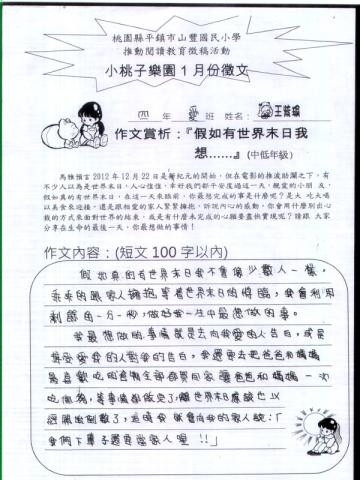 桃園縣平鎮市山豐國民小學
推動閱讀教育徵稿活動
小桃子樂園1月份徵文
四年愛班 姓名:王筱
作文賞析:『假如有世界末日我
想……』(中低年級)
馬雅預言2012年12月22日是新紀元的開始,但在電影的推波助瀾之下,有
不少人以為是世界末日,人心惶惶,幸好我們都平安度過這一天,親愛的小朋友,
假如真的有世界末日,在這一天來臨前,你最想完成的事是什麼呢?是大吃大喝
以美食來迎接,還是跟相愛的家人緊緊擁抱,訴說內心的感動,你會用什麼別出心
裁的方式來面對世界的結束,或是有什麼未完成的心願要盡快實現呢?請跟大家
分享在生命的最後一天,你最想做的事情!
作文內容:(短文100字以內)
假如真的有世界末日我不會像少數人一樣,
乖乖的跟家人擁抱等著世界末日的降臨,我會利用
剩餘的一分一秒,做好我一生中最想做的事。
我最想做的事情就是去向我愛的人告白,或是
接受愛我的人對我的告白,我還要去把爸爸和媽媽
最喜歡吃的食物全部都買回家讓爸爸和媽媽一次
吃個夠,等事情都做完了,離世界末日應該也以
經開始倒數了,這時我就會向我的家人說:「
我們下輩子還要當家人喔!!」